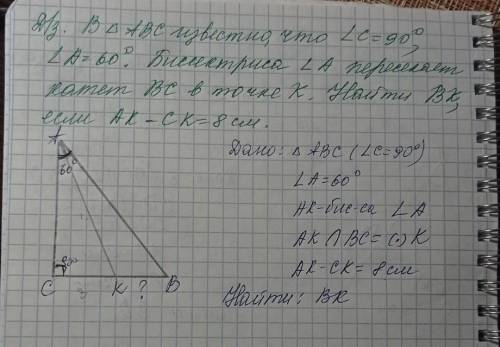 Д/з. В △ ABC известно, что ∠C=90°,
∠A=60°. Биссектриса ∠A пересекает
катет BC в точке K. Найти BK,
если AK-CK=8см.
Дано: △ ABC (∠C=90°)
∠A=60°
AK-бис-са ∠A
AK ∩ BC = (·) K
AK-CK=8см
Найти: BK
A
60°
90°
C K ? B